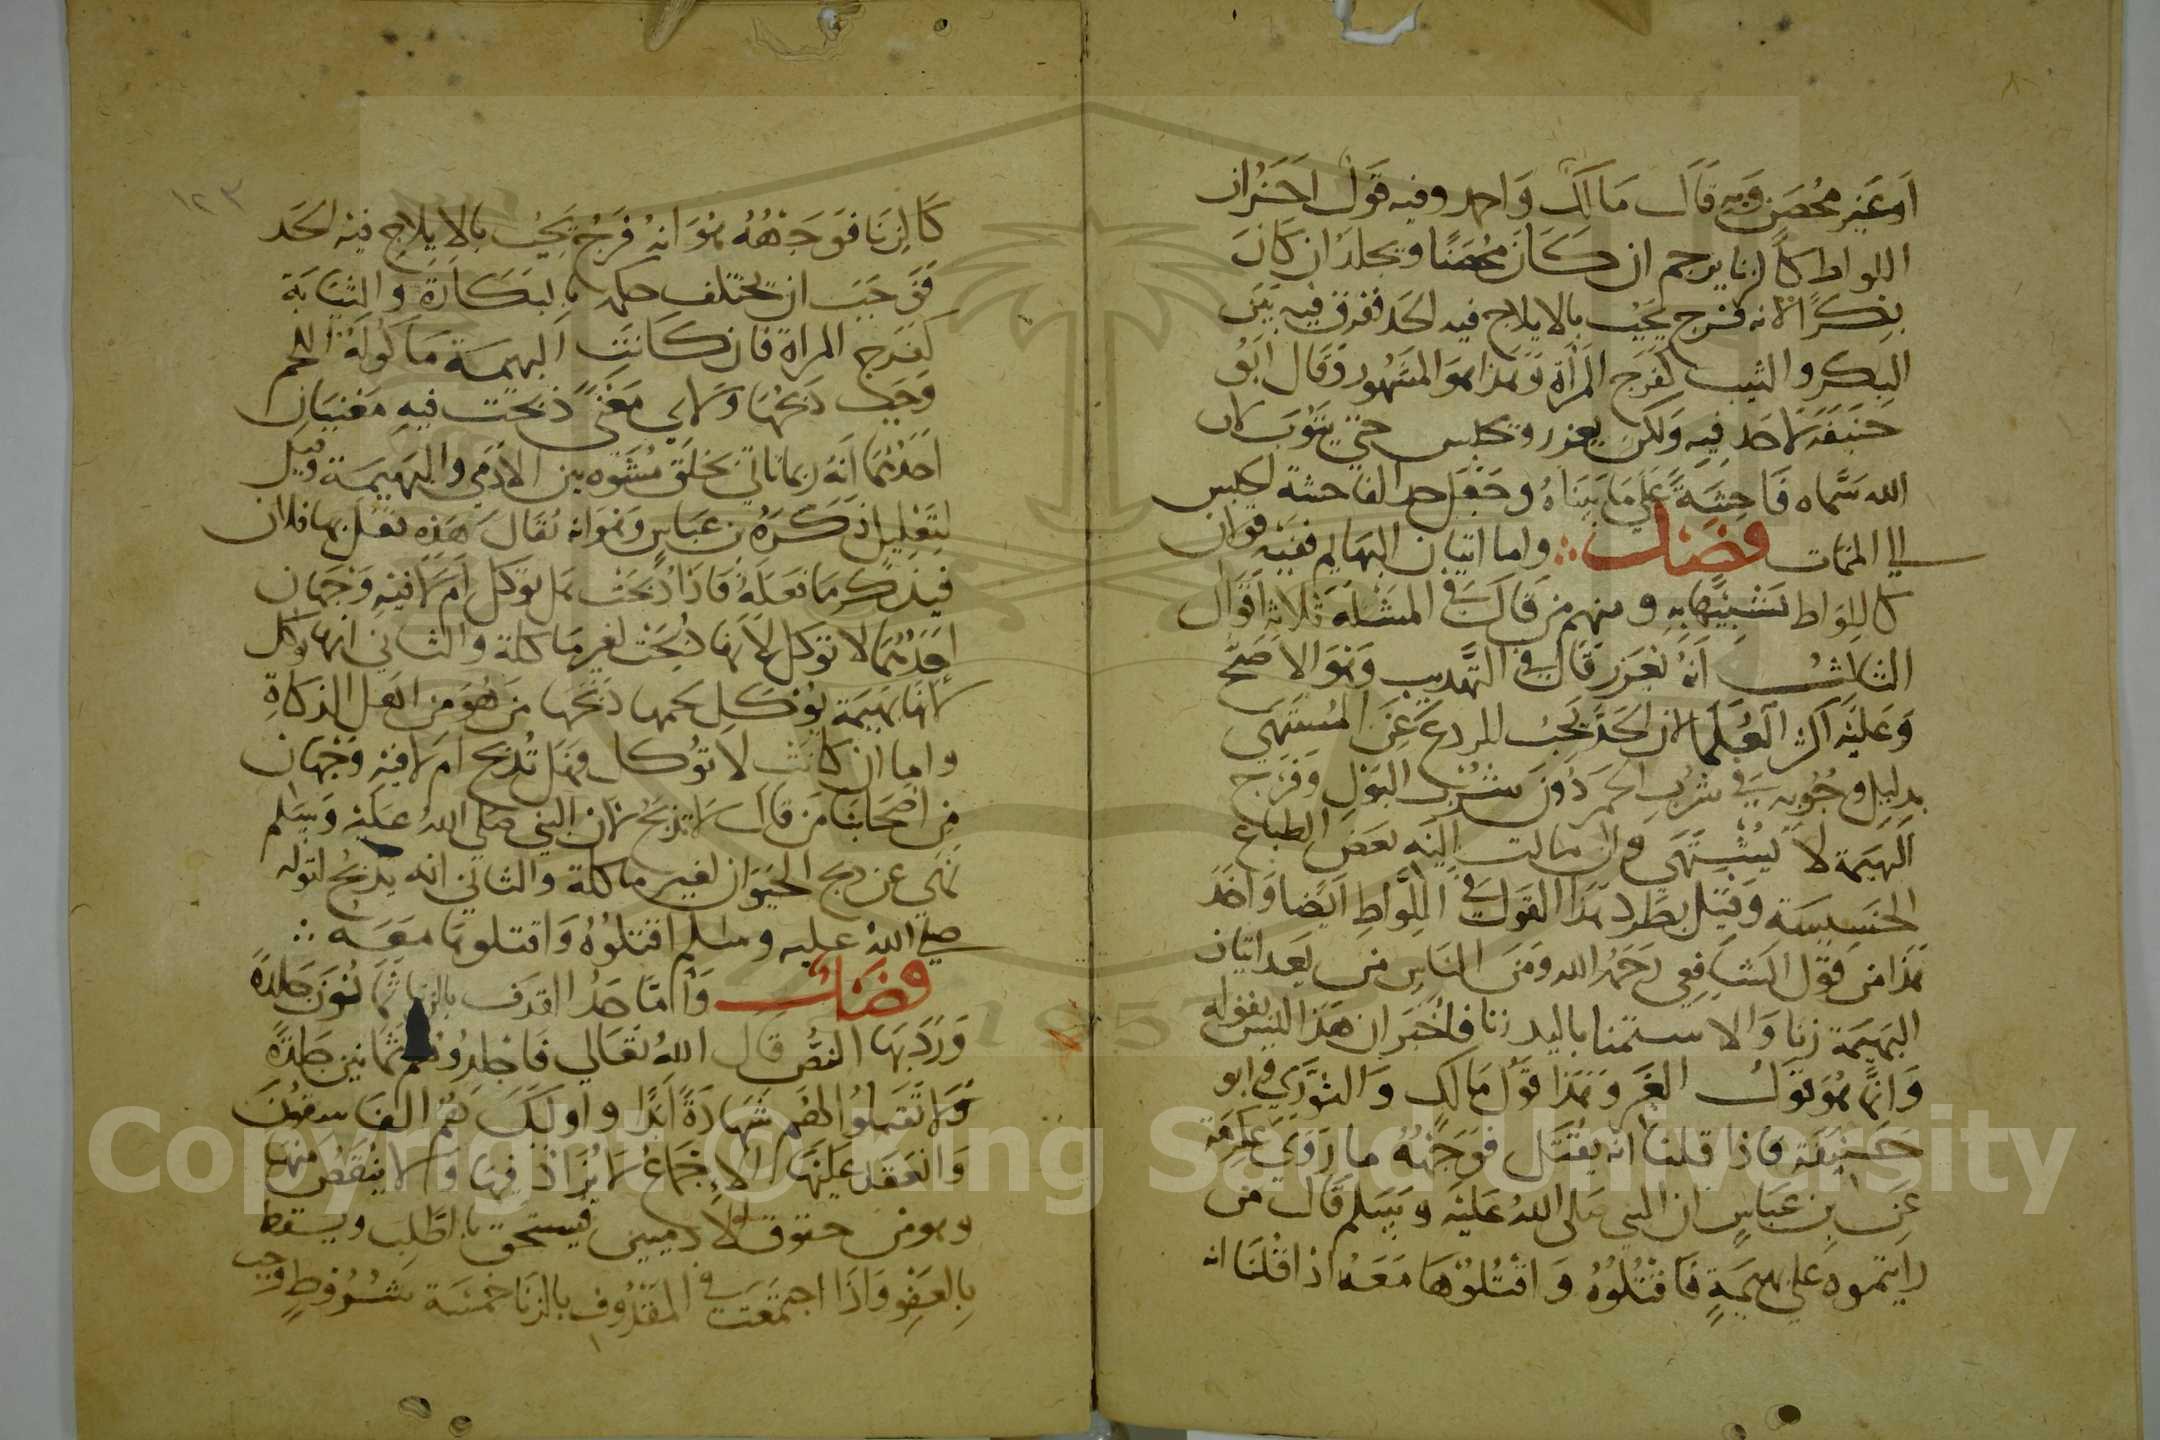 او غير محصن وبه قال مالك واحمد وفيه قول اخر ان
اللواط كالزنا يرجم ان كان محصنا ويجلد ان كان
بكرا لانه فرج يجب بالايلاج فيه الحد ففرق فيه بين
البكر والثيب كفرج المرأة وهذا هو المشهور وقال ابو
حنيفة لا حد فيه ولكن يعزر ويحبس حتى يتوب لان
الله سماه فاحشة على ما بيناه وجعل حد الفاحشة الحبس
الي الممات فصل واما اتيان البهايم ففيه قولان
كاللواط تشبيها به ومنهم من قال في المسئلة ثلاثة اقوال
الثالث انه يعزر قال في التهذيب وهو الاصح
وعليه اكثر العلما لان الحد يجب للردع عن المشتهي
بدليل وجوبه في شرب الخمر دون شرب البول وفرج
البهيمة لا يشتهي وان مالت اليه بعض الطباع
الخسيسة وقيل يطرد هذا القول في اللواط ايضا واخذ
هذا من قول الشافعي رحمه الله ومن الناس من يعد اتيان
البهيمة زنا والاستمنا باليد زنا فاخبر ان هذا ليس بقوله
وانما هو قول الغير وهذا قول مالك والثوري وابو
حنيفة فاذا قلنا انه يقتل فوجهه ما روي عكرمة
عن بن عباس ان النبي صلى الله عليه وسلم قال من
رايتموه على بهيمة فاقتلوه واقتلوها معه اذا قلنا انه
١٢٣
كالزنا فوجهه هو انه فرج يجب بالايلاج فيه الحد
فوجب ان يختلف حكمه بالبكارة والثيابة
كفرج المراة فان كانت البهيمة ماكولة اللحم
وجب ذبحها ولاي معنى ذبحت فيه معنيان
احدهما انه ربما تاتي بخلق مشوه بين الادمي والبهيمة وقيل
لتعليل ذكره بن عباس وهو انه يقال هذه فعل بها فلان
فيذكر ما فعله فاذا ذبحت هل توكل ام لا فيه وجهان
احدهما لا توكل لانها ذبحت لغير ماكلة والثاني انها توكل
لانها بهيمة يوكل لحمها ذبحها من هو من اهل الذكاة
واما ان كانت لا توكل فهل تذبح ام لا فيه وجهان
من اصحابنا من قال لا تذبح لان النبي صلى الله عليه وسلم
نهي عن ذبح الحيوان لغير ماكلة والثاني انه يذبح لقوله
صلى الله عليه وسلم اقتلوه واقتلوها معه
فصل واما حد القذف بالزنا ثمانون جلدة
ورد بها النص قال الله تعالى فاجلدوهم ثمانين جلدة
ولا تقبلوا لهم شهادة ابدا واوليك هم الفاسقون
وانعقد عليها الاجماع لا يزاد فيها ولا ينقص منها
وهو من حقوق الادميين فيستحق بالطلب ويسقط
بالعفو واذا اجتمعت في المقذوف بالزنا خمسة شروط وجب
Copyright © King Saud University
1957